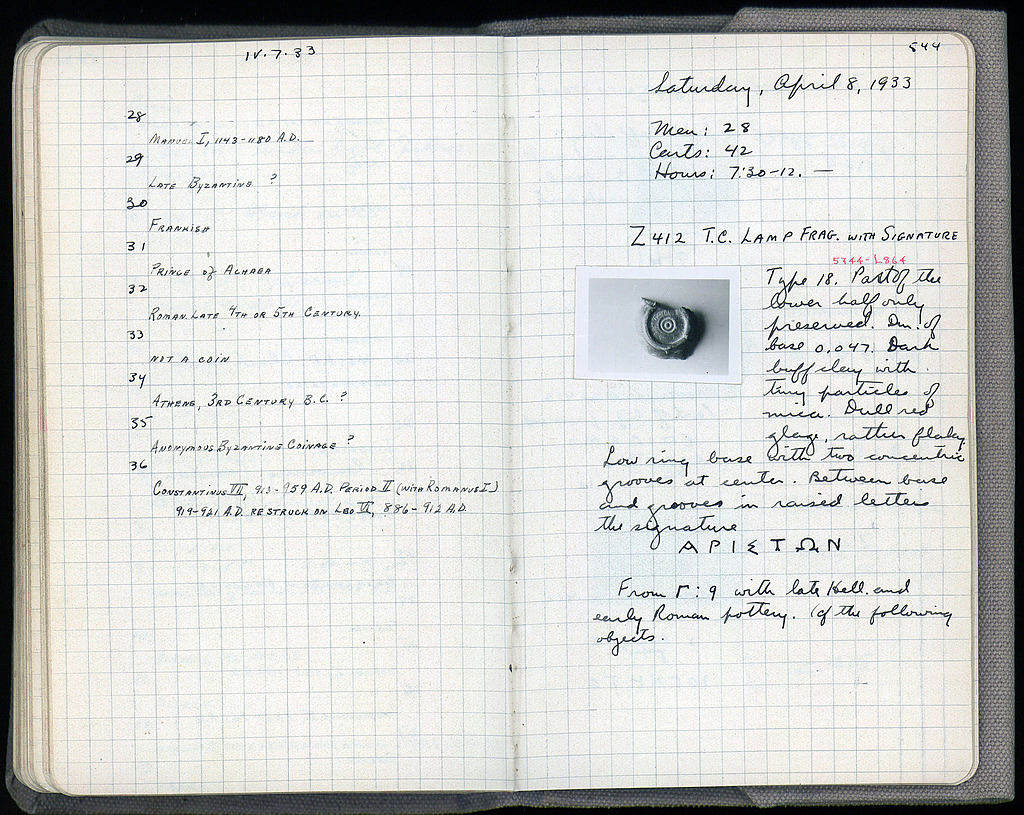 IV.7.33
28
MANUEL I, 1143-1180 A.D.
29
LATE BYZANTINE ?
30
FRANKISH
31
PRINCE of ACHAEA
32
ROMAN. LATE 4TH OR 5TH CENTURY.
33
NOT A COIN
34
ATHENS, 3RD CENTURY B.C. ?
35
ANONYMOUS BYZANTINE COINAGE ?
36
CONSTANTINUS VII, 913-959 A.D. PERIOD II (WITH ROMANUS I)
919-921 A.D. RESTRUCK ON LEO VI, 886-912 A.D.
544
Saturday, April 8, 1933
Men: 28
Carts: 42
Hours: 7:30-12. —
Z 412 T.C. LAMP FRAG. WITH SIGNATURE
5344-L864
Type 18. Part of the
lower half only
preserved. Dm. of
base 0.047. Dark
buff clay with
tiny particles of
mica. Dull red
glaze, rather flaky
Low ring base with two concentric
grooves at center. Between base
and grooves in raised letters
the signature
ΑΡΙΣΤΩΝ
From Γ: 9 with late Hell. and
early Roman pottery. Cf the following
objects.